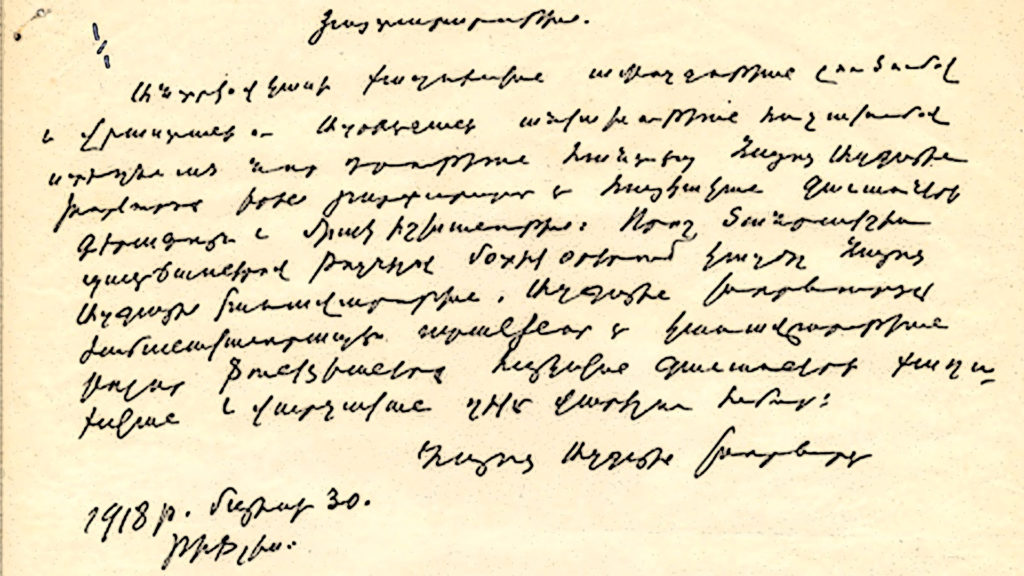 Յայտարարութիւն.
Անդրկովկասի քաղաքական ամբողջութեան լուծումով
և Վրաստանի ու Ադրբէջանի անկախութեան հռչակումով
ստեղծուած նոր դրութեան հանդէպ Հայոց Ազգային
խորհուրդը իրեն յայտարարում է հայկական գաւառների
գերագոյն և միակ իշխանութիւն։ Որոշ ծանրակշիռ
պատճառներով թողնելով մօտիկ օրերում կազմել Հայոց
Ազգային կառավարութիւն, Ազգային խորհուրդը
ժամանակաւորապէս ստանձնում է կառավարական
բոլոր ֆունկցիաները հայկական գաւառների քաղա-
քական և վարչական ղեկը վարելու համար։
Հայոց Ազգային խորհուրդ
1918 թ. մայիսի 30.
Թիֆլիս.